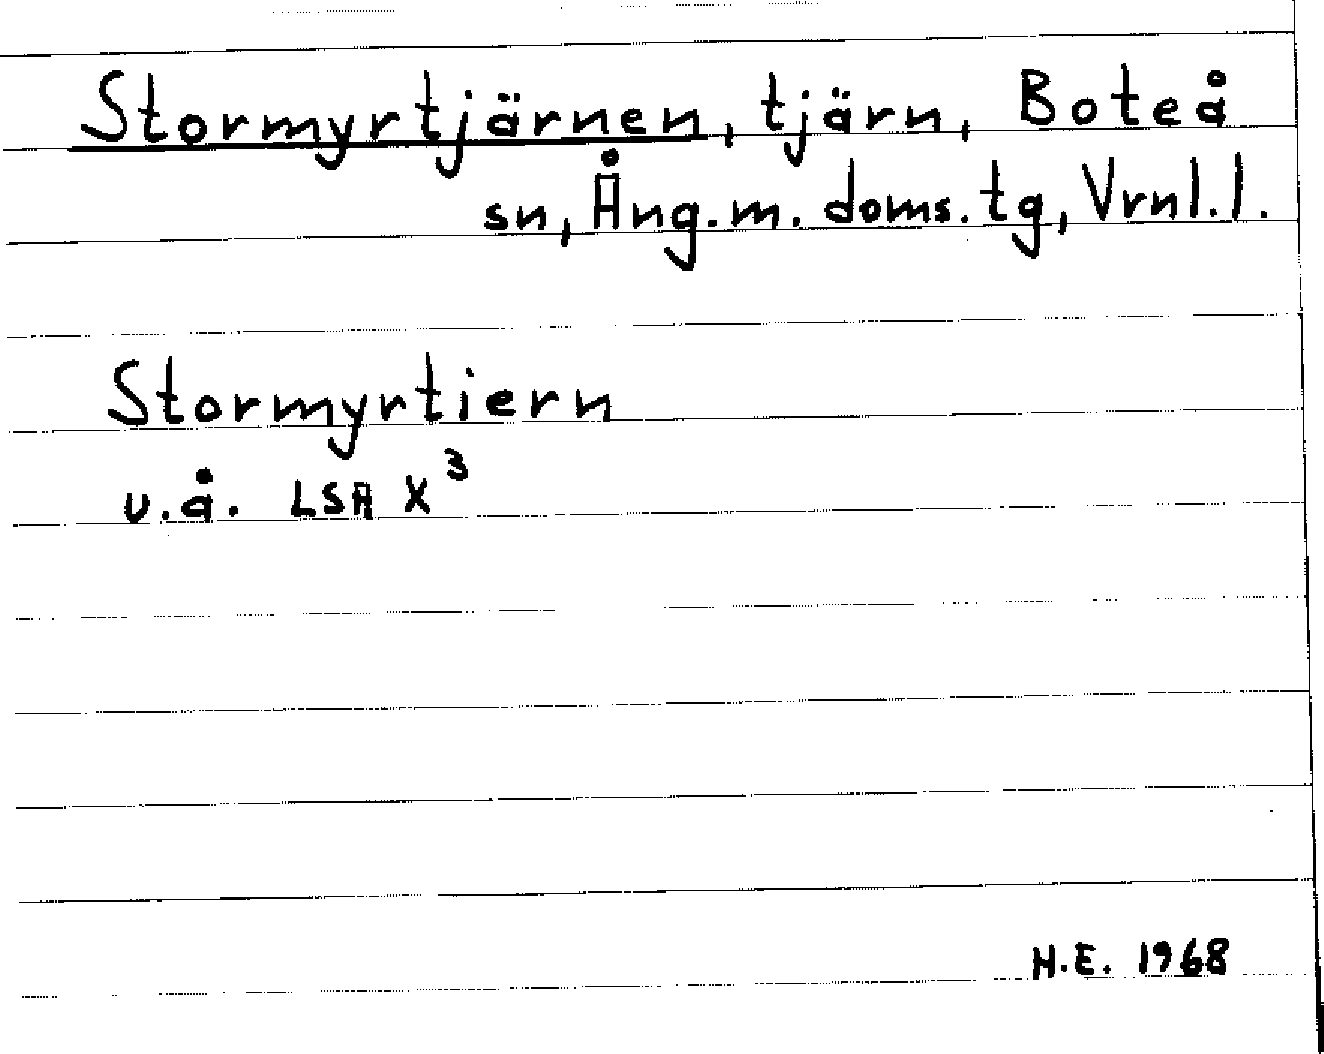 Stormyrtjärnen, tjärn, Boteå
sn, Ång.m. doms.tg, Vrnl.l.
Stormyrtiern
u.å. LSA X³
H.E. 1968